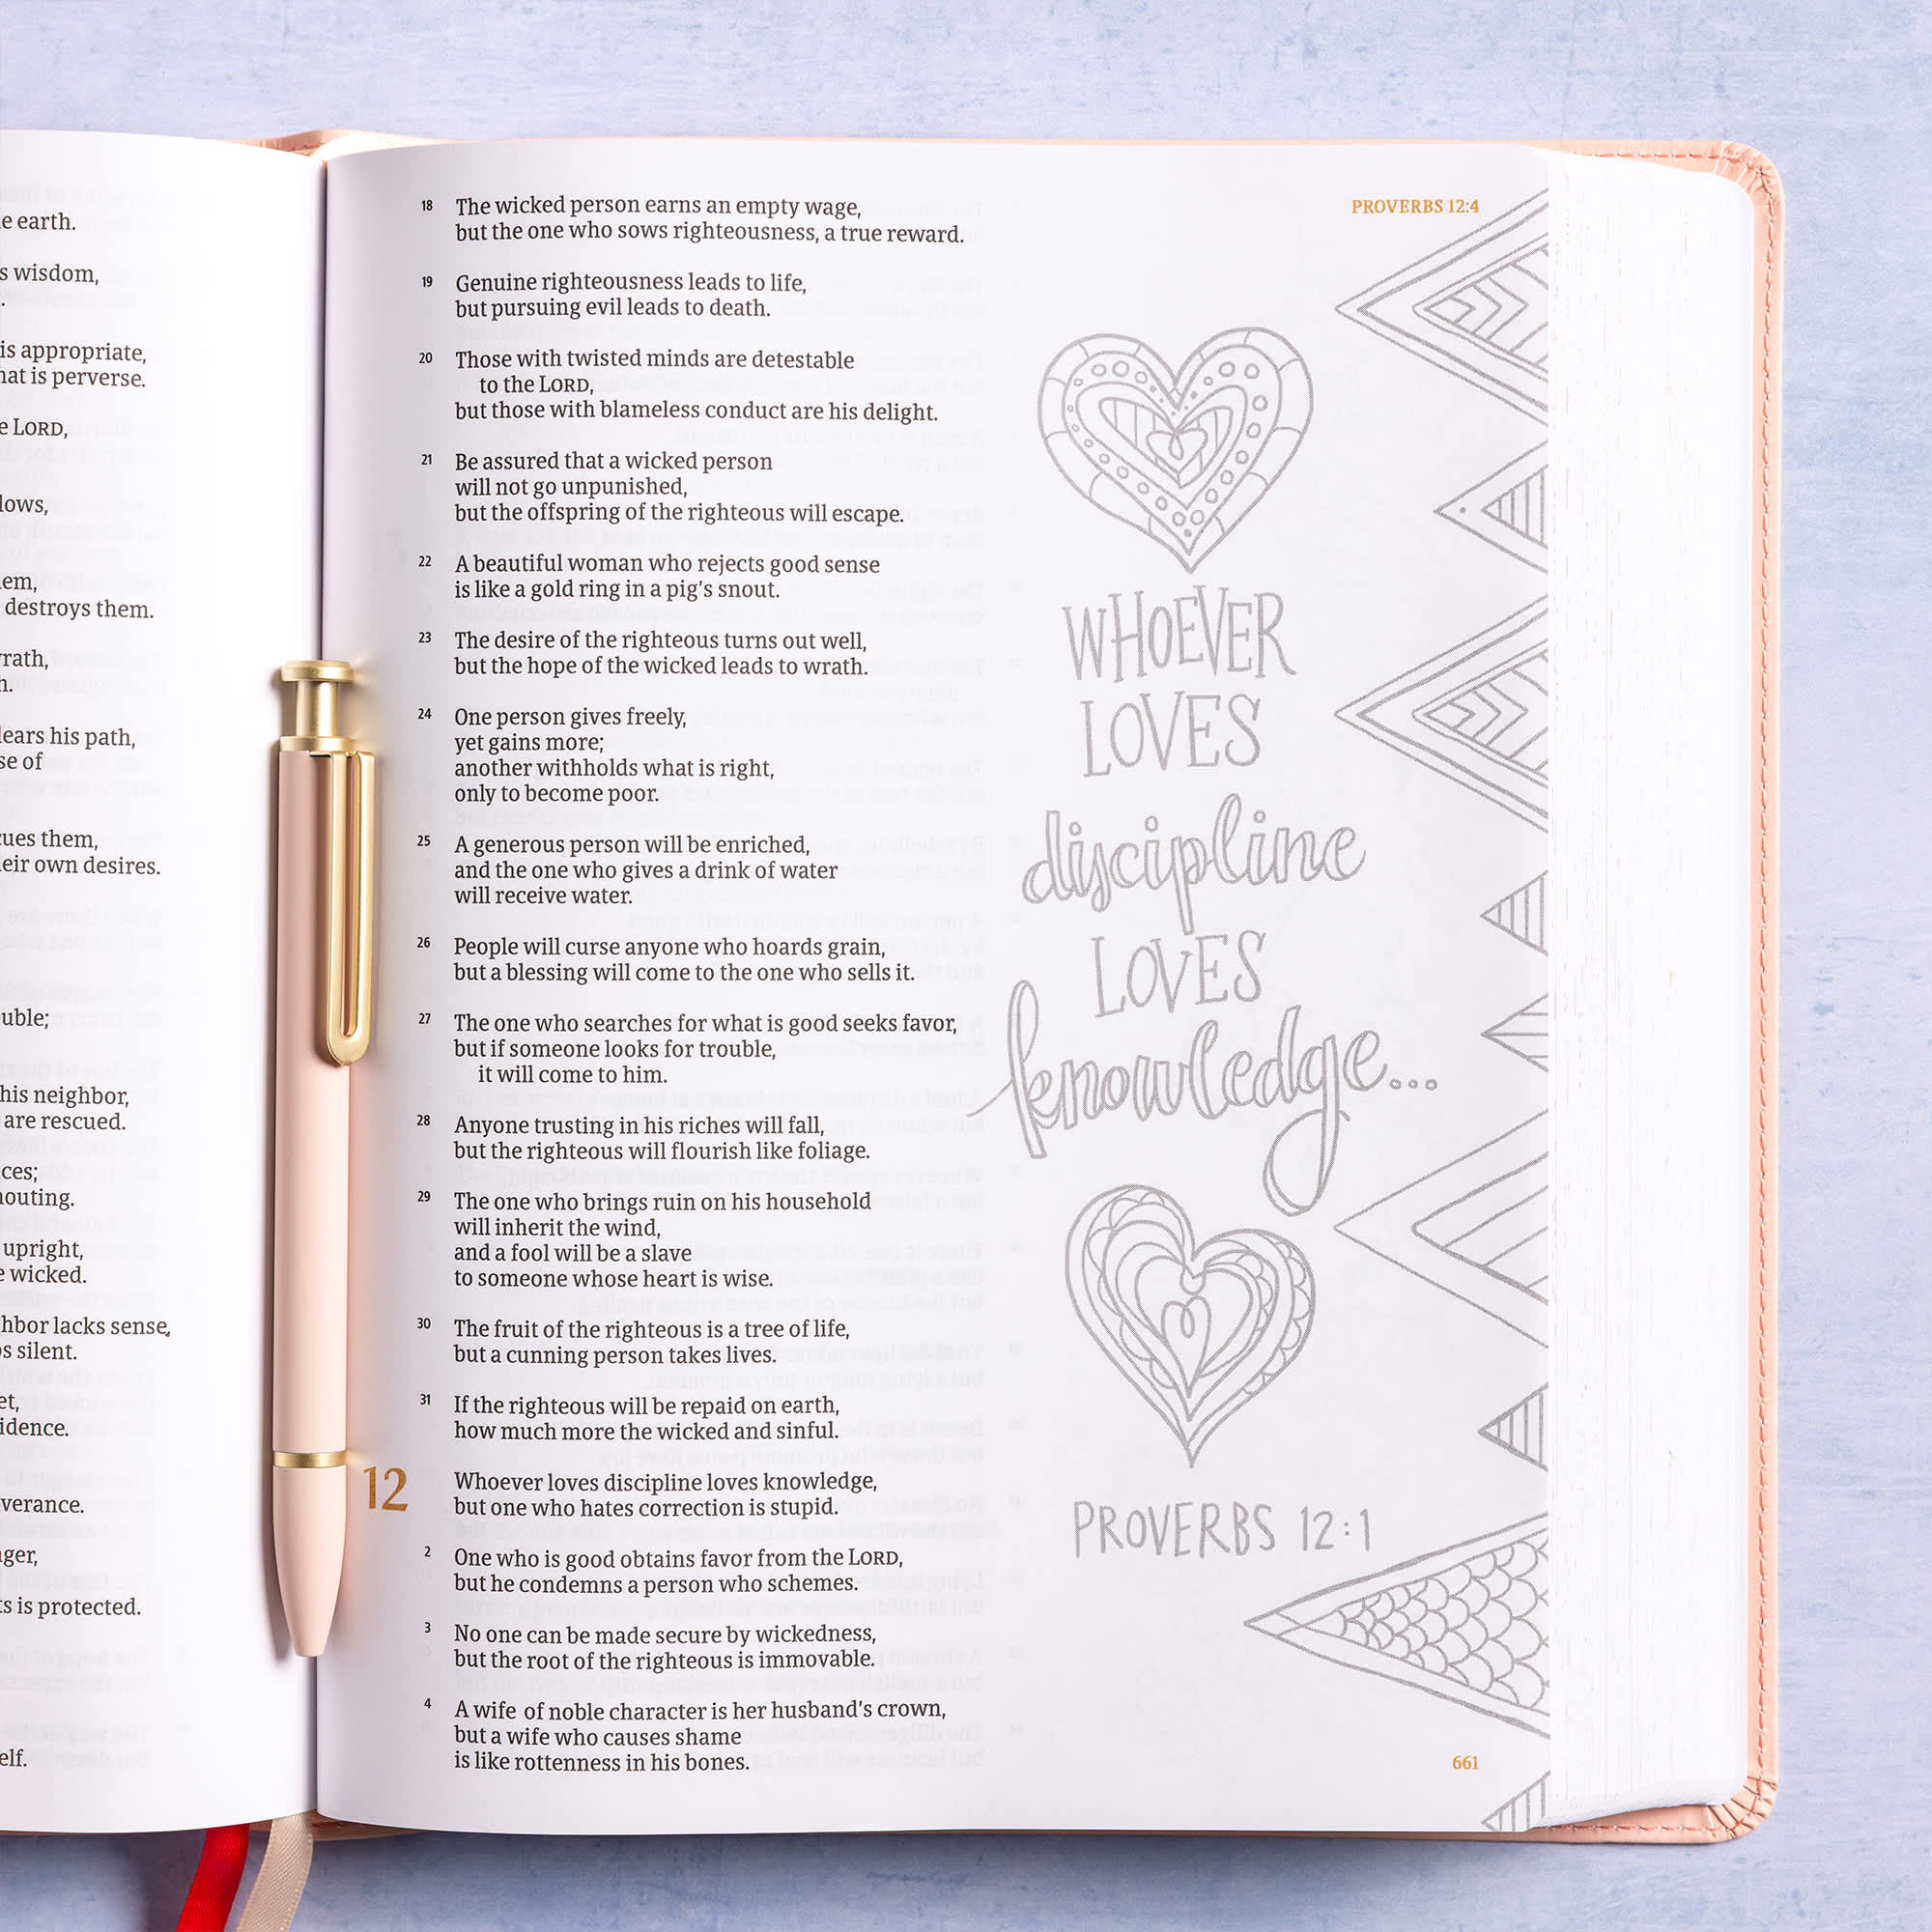 e earth.
s wisdom,
.
is appropriate,
hat is perverse.
e LORD,
lows,
em,
destroys them.
rath,
h.
lears his path,
se of
cues them,
eir own desires.
uble;
his neighbor,
are rescued.
ces;
houting.
upright,
e wicked.
hbor lacks sense,
ps silent.
et,
idence.
verance.
ger,
ts is protected.
elf.
PROVERBS 12:4
18 The wicked person earns an empty wage,
but the one who sows righteousness, a true reward.
19 Genuine righteousness leads to life,
but pursuing evil leads to death.
20 Those with twisted minds are detestable
to the LORD,
but those with blameless conduct are his delight.
21 Be assured that a wicked person
will not go unpunished,
but the offspring of the righteous will escape.
22 A beautiful woman who rejects good sense
is like a gold ring in a pig's snout.
23 The desire of the righteous turns out well,
but the hope of the wicked leads to wrath.
24 One person gives freely,
yet gains more;
another withholds what is right,
only to become poor.
25 A generous person will be enriched,
and the one who gives a drink of water
will receive water.
26 People will curse anyone who hoards grain,
but a blessing will come to the one who sells it.
27 The one who searches for what is good seeks favor,
but if someone looks for trouble,
it will come to him.
28 Anyone trusting in his riches will fall,
but the righteous will flourish like foliage.
29 The one who brings ruin on his household
will inherit the wind,
and a fool will be a slave
to someone whose heart is wise.
30 The fruit of the righteous is a tree of life,
but a cunning person takes lives.
31 If the righteous will be repaid on earth,
how much more the wicked and sinful.
12 Whoever loves discipline loves knowledge,
but one who hates correction is stupid.
2 One who is good obtains favor from the LORD,
but he condemns a person who schemes.
3 No one can be made secure by wickedness,
but the root of the righteous is immovable.
4 A wife of noble character is her husband's crown,
but a wife who causes shame
is like rottenness in his bones.
WHOEVER
LOVES
discipline
LOVES
knowledge...
PROVERBS 12:1
661